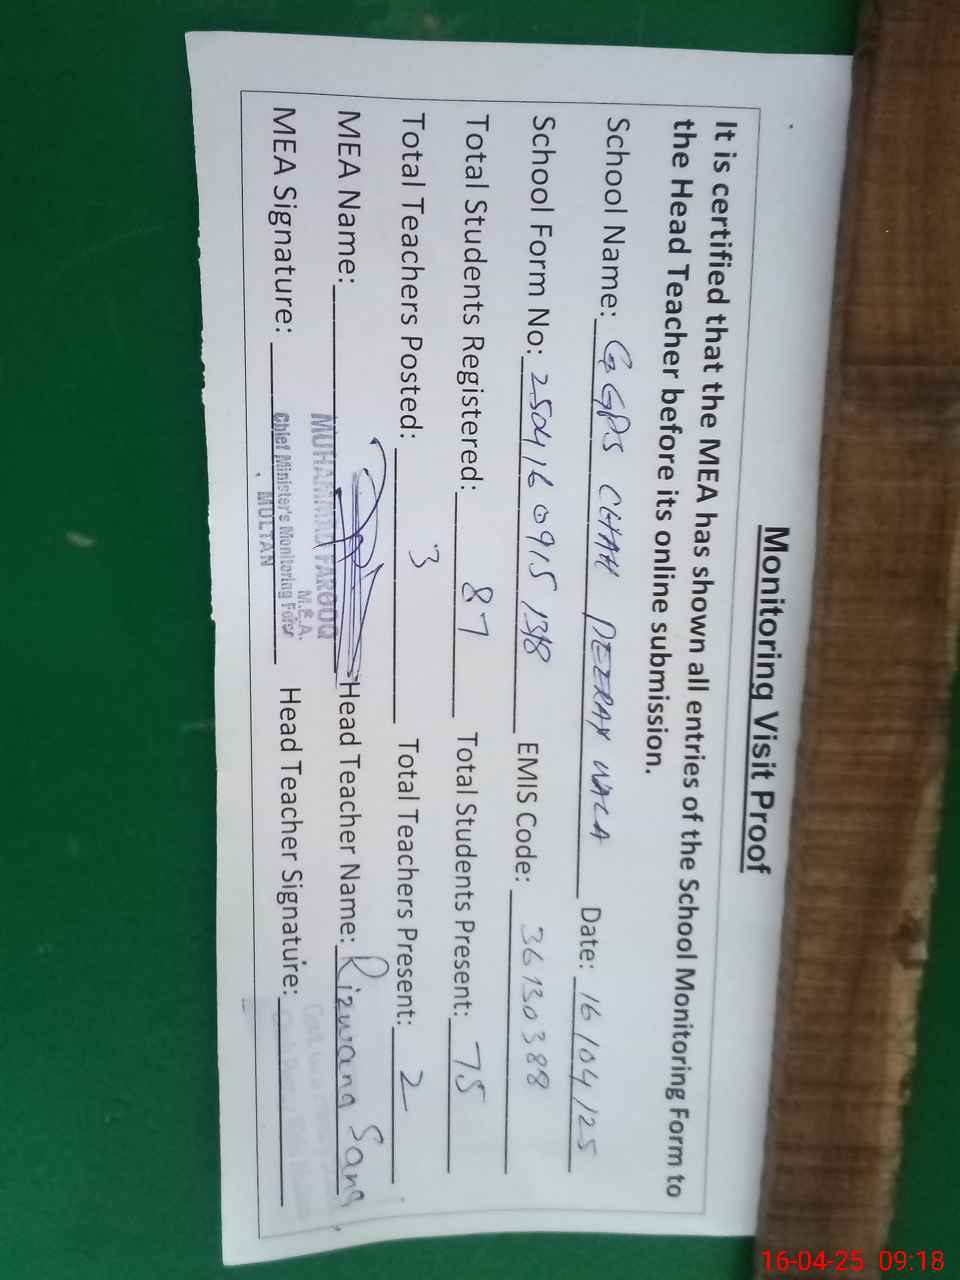 Monitoring Visit Proof
It is certified that the MEA has shown all entries of the School Monitoring Form to
the Head Teacher before its online submission.
School Name: GGPS CHAH PEERAY WALA Date: 16/04/25
School Form No: 2504160915 1318 EMIS Code: 36130388
Total Students Registered: 87 Total Students Present: 75
Total Teachers Posted: 3 Total Teachers Present: 2
MEA Name: Head Teacher Name: Rizwana Sana
MUHAMMAD FAROOQ
M.E.A.
MEA Signature: Head Teacher Signature:
Chief Minister's Monitoring Force
MULTAN
16-04-25 09:18